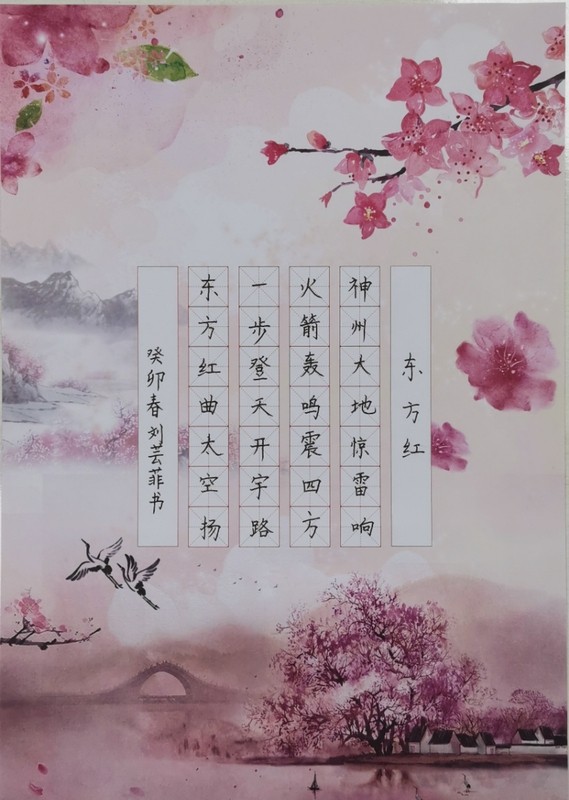 东方红
神州大地惊雷响
火箭轰鸣震四方
一步登天开宇路
东方红曲太空扬
癸卯春刘芸菲书